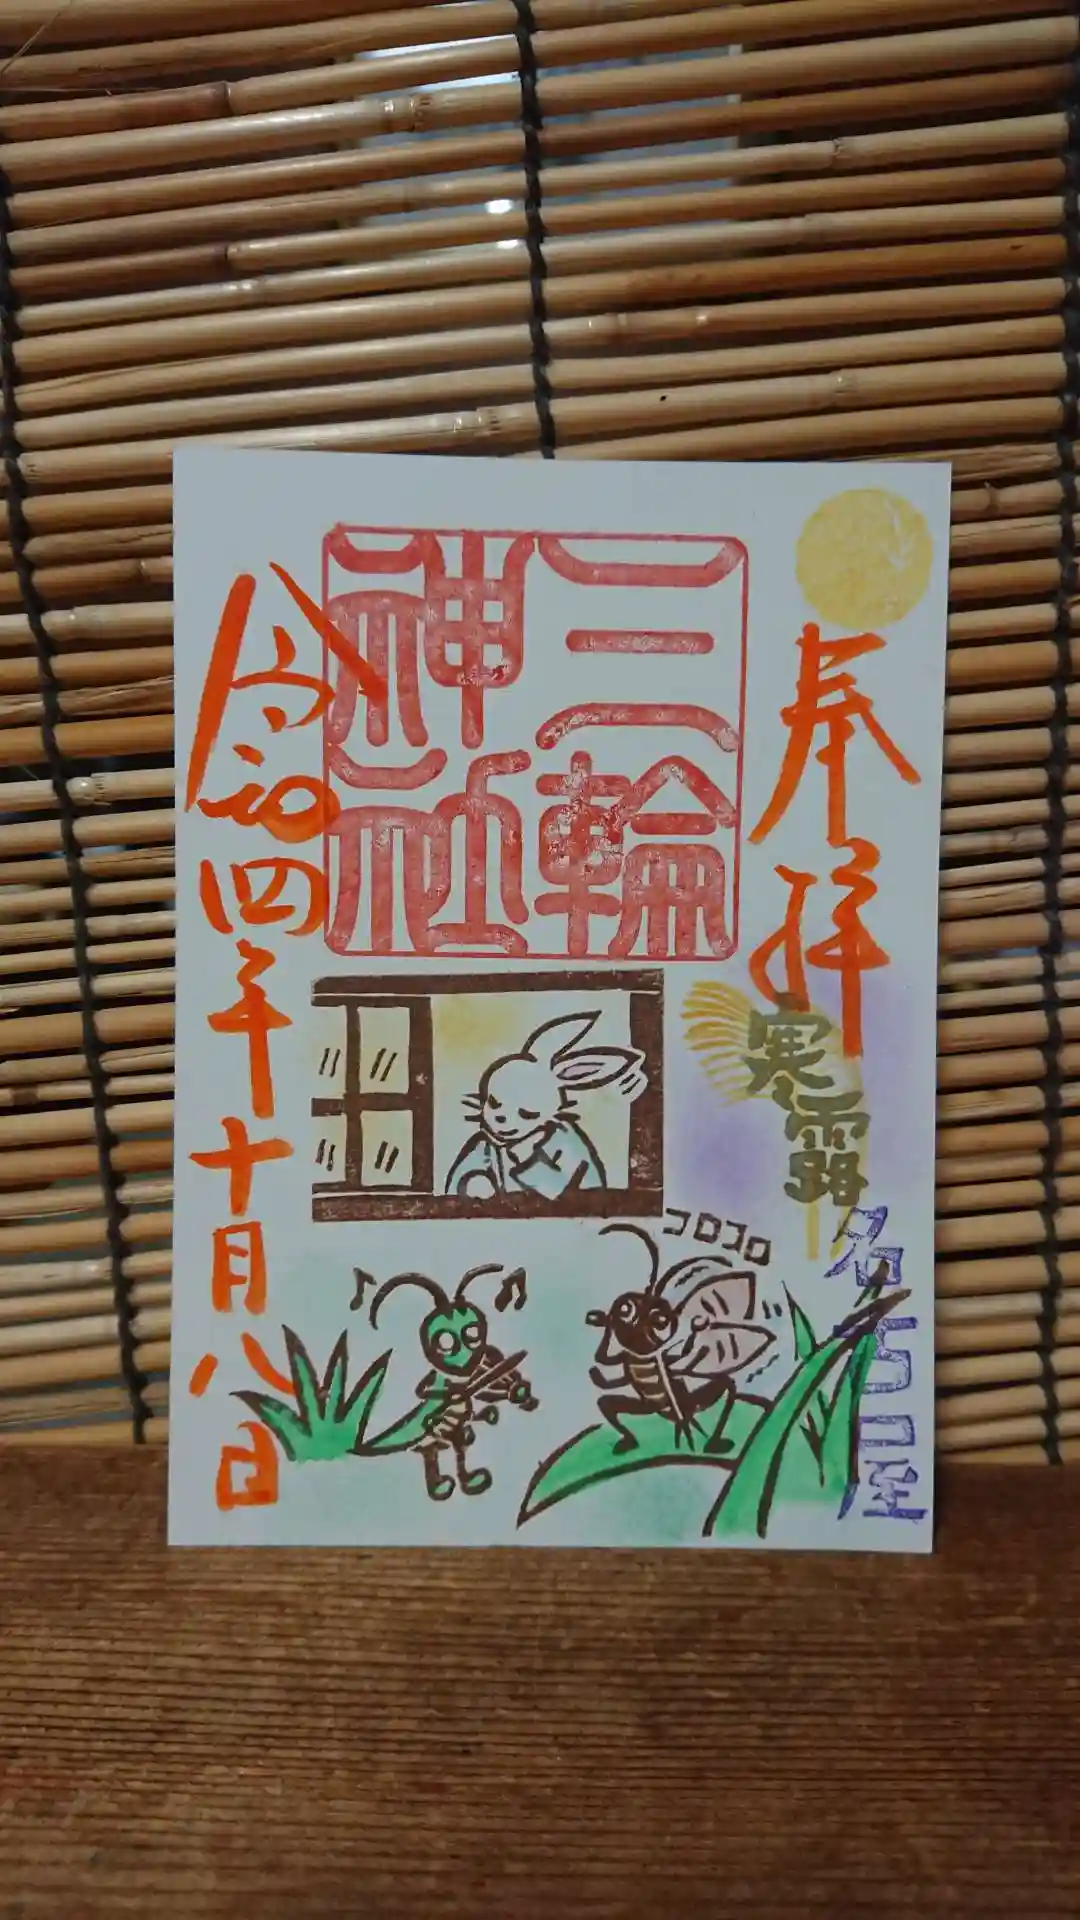 奉拝
寒露
名古屋
三輪
神社
コロコロ
令和四年十月八日